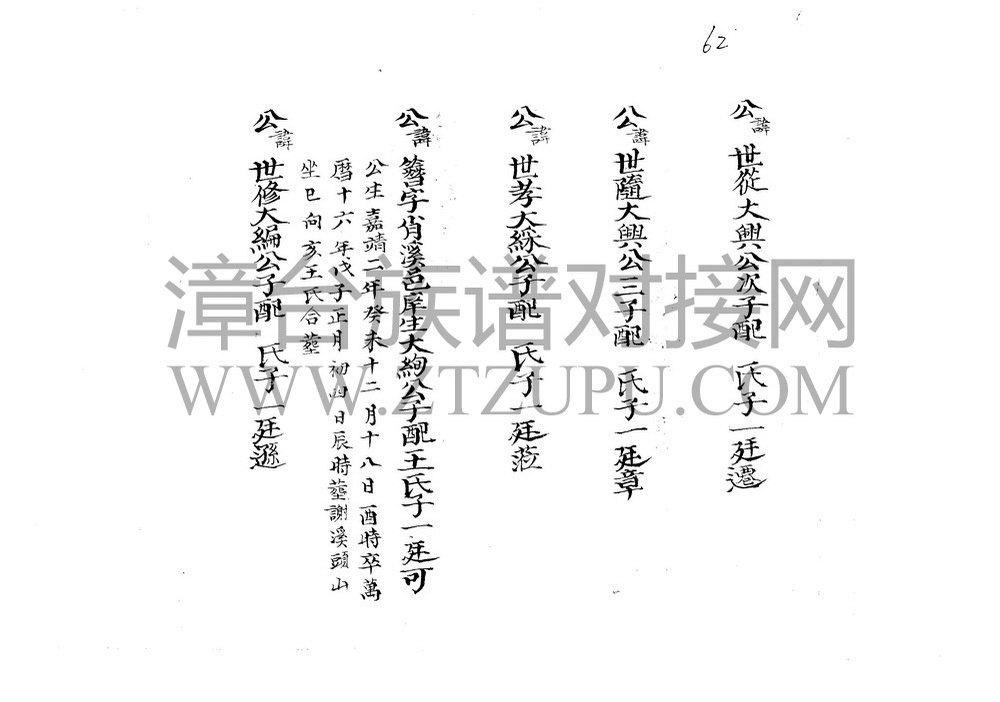 62
公諱世從大興公次子配 氏子一廷遷
公諱世隨大興公三子配 氏子一廷章
公諱世孝大綵公子配 氏子一廷蒞
公諱簪字肖溪邑庠生大絢公子配王氏子一廷可
公生嘉靖二年癸未十二月十八日酉時卒萬
曆十六年戊子正月初四日辰時塟謝溪頭山
坐巳向亥王氏合塟
公諱世修大編公子配 氏子一廷遜
漳台族谱对接网
WWW.ZTZUPU.COM